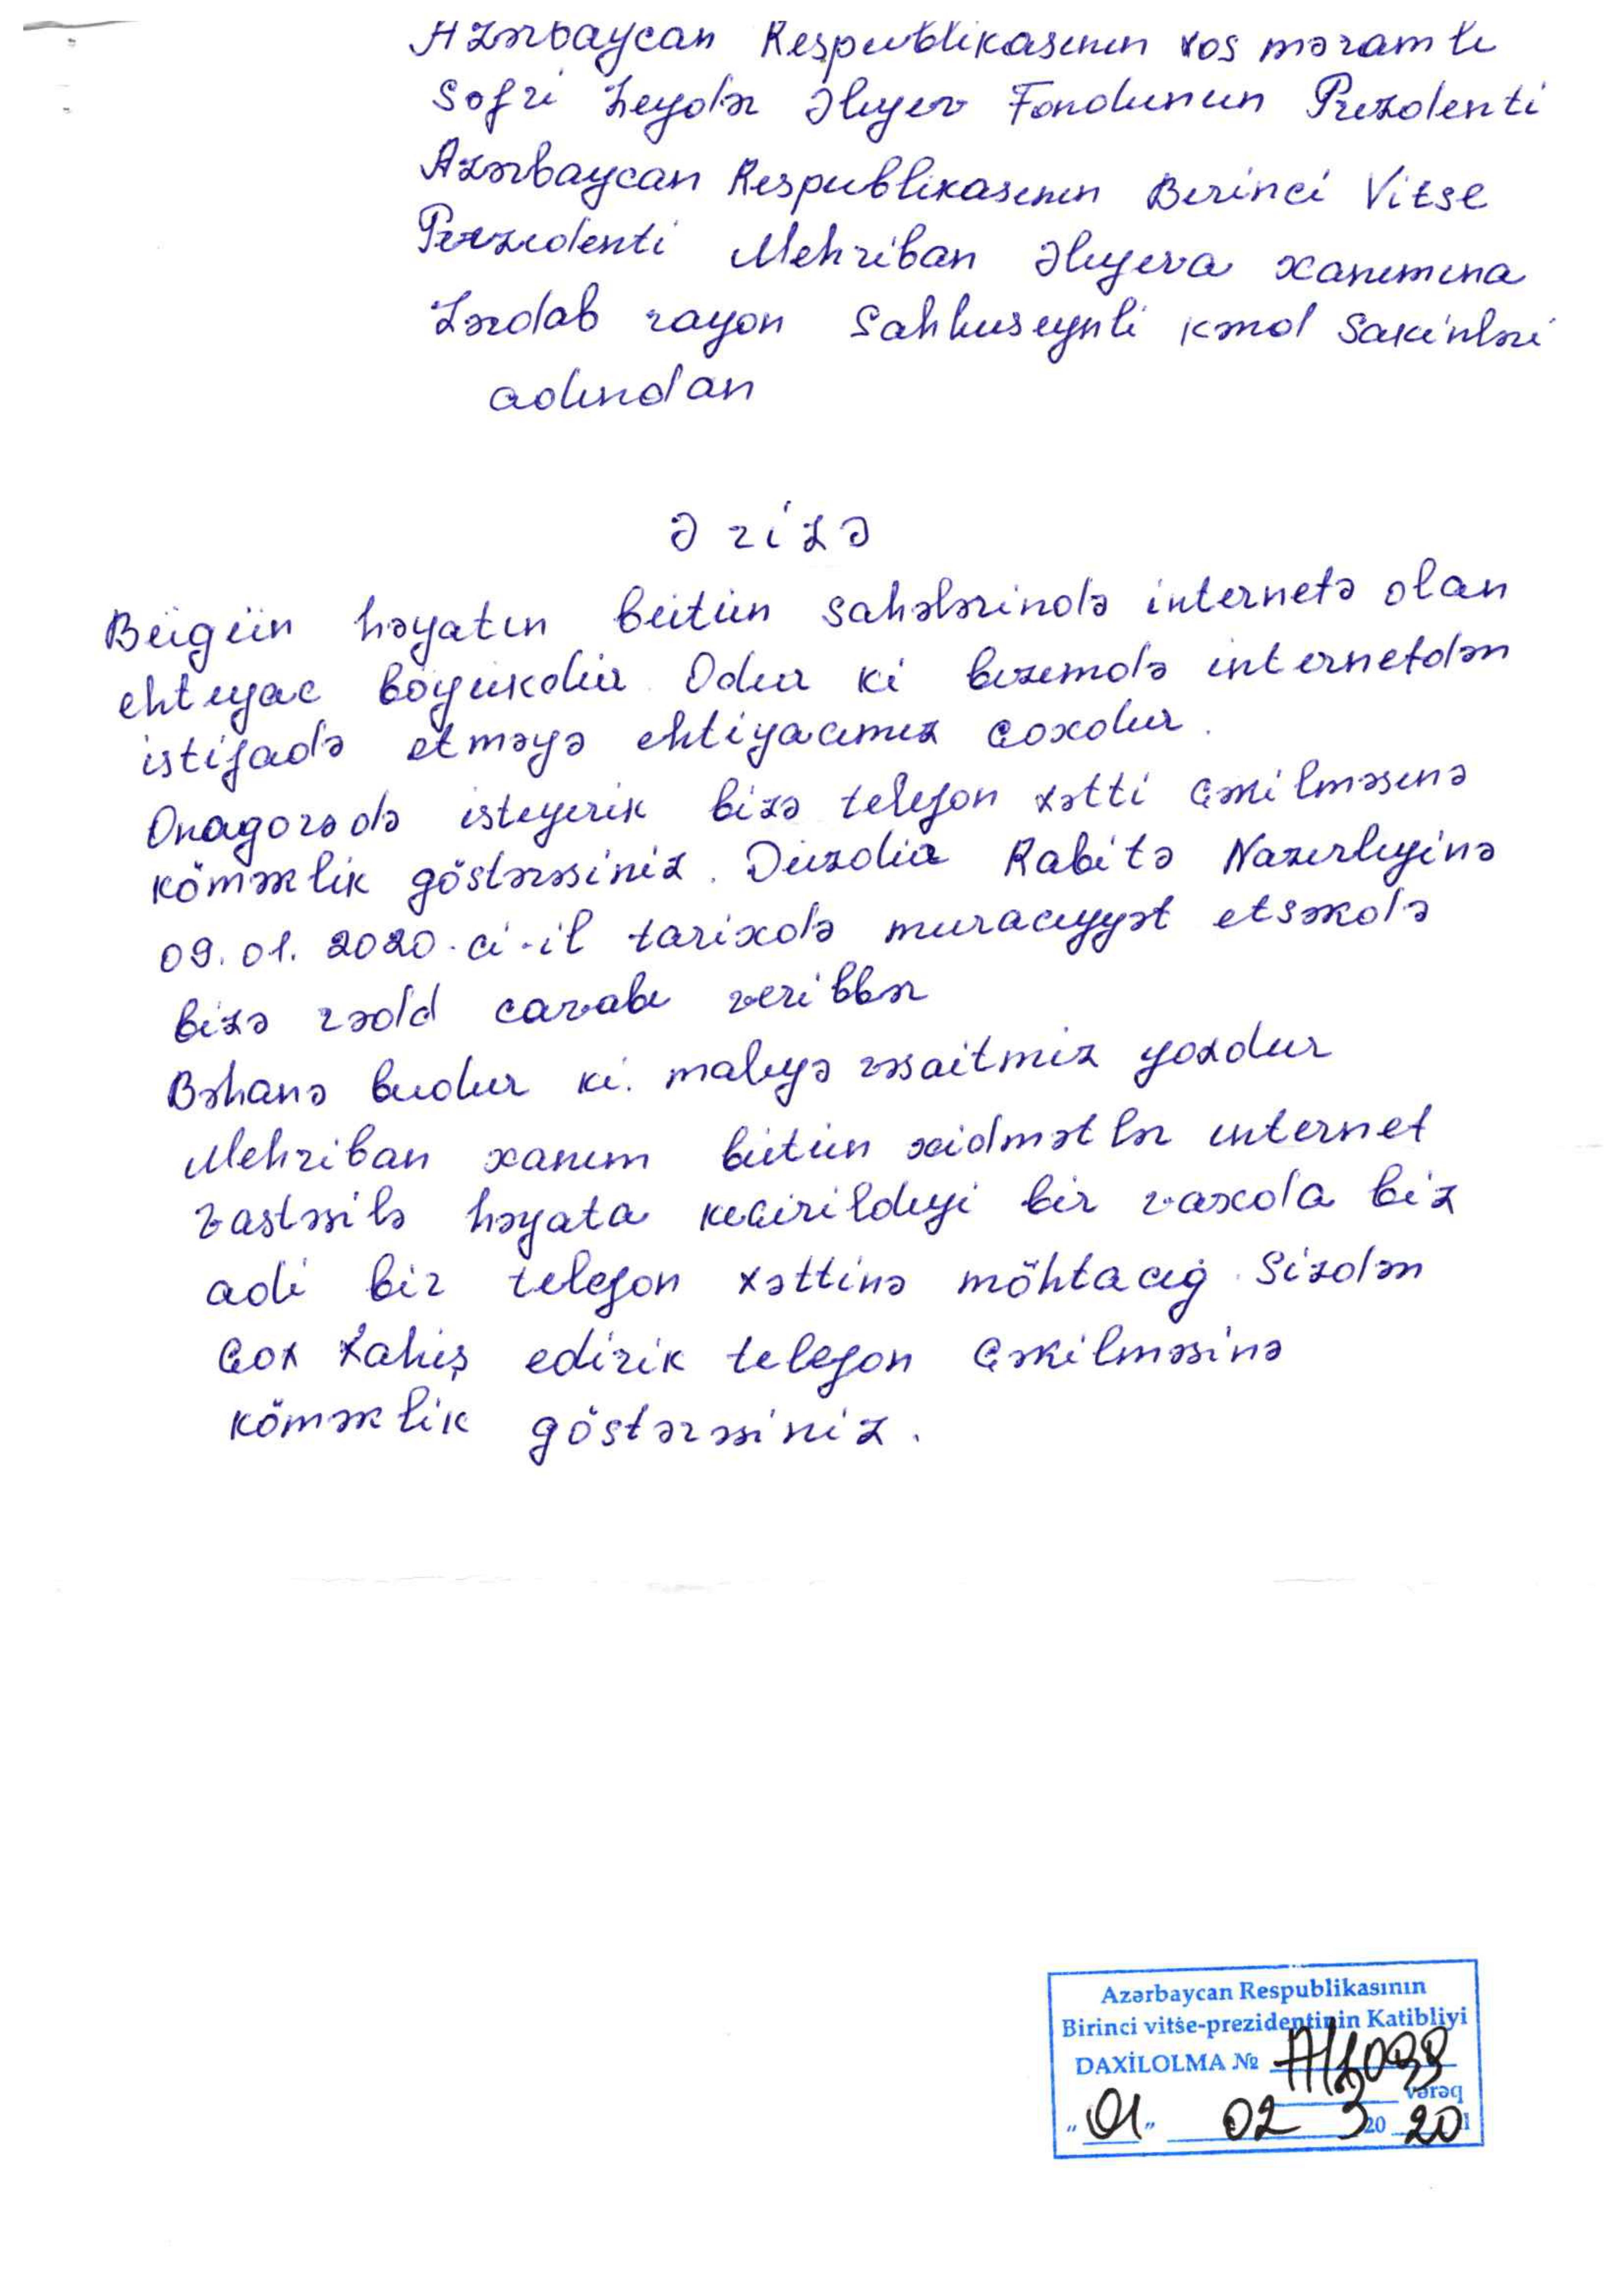 Azərbaycan Respublikasının xos məramlı
Səfri Heydər Əlıyev Fondunun Prezdenti
Azərbaycan Respublikasının Birinci Vitse
Prezıdenti Mehriban Əlıyeva xanımına
Zərdab rayon Sahhuseynli kənd Sakinləri
adından
Ə r i z ə
Bügün həyatın bütün sahələrində internetə olan
ehtıyac böyükdür. Odur ki bizimdə internetdən
istifadə etməyə ehtiyacımız coxdur.
Onagorədə isteyirik bizə telefon xətti çəkilməsinə
köməklik göstərəsiniz. Düzdür Rabitə Nazırlıyinə
09.01.2020-ci-il tarixdə muracıyyət etsəkdə
bizə rədd cavabı veriblər
Bəhanə budur ki. malıyə vəsaitmiz yoxdur
Mehriban xanım bütün xidmətlər internet
vastəsilə həyata kecirildıyi bir vaxda biz
adi bir telefon xəttinə möhtacığ. Sizdən
Çox Xahiş edirik telefon çəkilməsinə
köməklik göstərəsiniz.
Azərbaycan Respublikasının
Birinci vitse-prezidentinin Katibliyi
DAXİLOLMA №
vərəq
"01" 02 2020 il